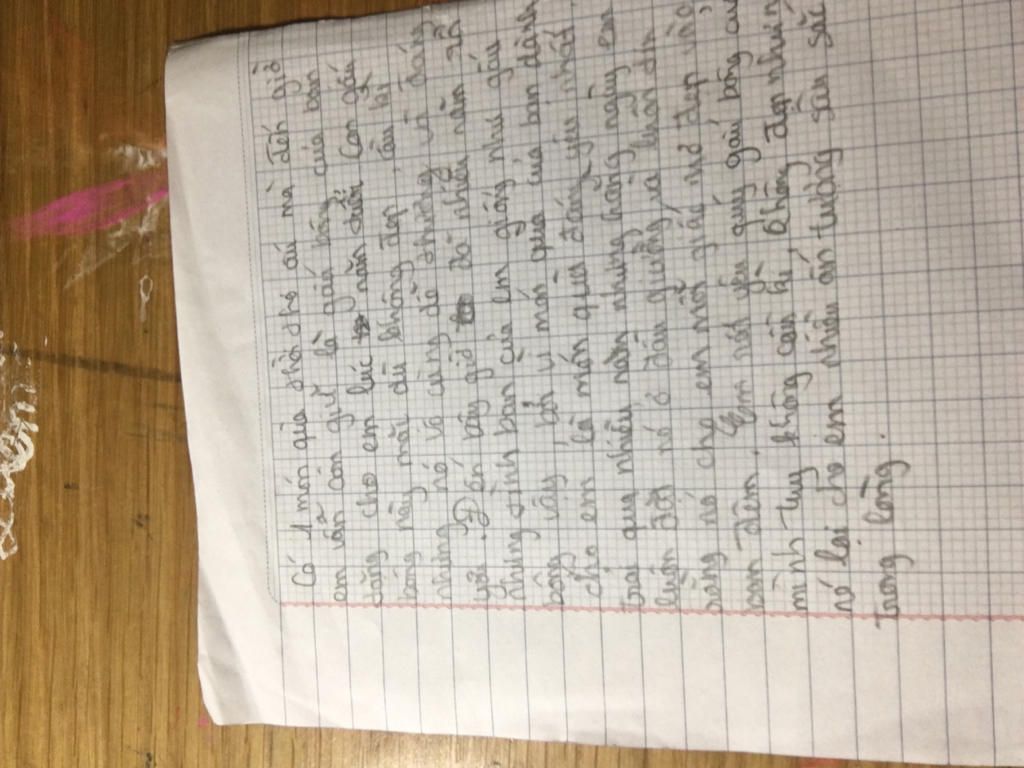 Có 1 món quà thời thơ ấu mà đến giờ
em vẫn còn giữ là gấu bông của bạn
tặng cho em lúc năm cuối. Con gấu
bông này mặc dù không đẹp, cầu kì
nhưng nó vô cùng dễ thương và đáng
yêu. Đến bây giờ đã nhiều năm rồi
nhưng tình bạn của em giống như gấu
bông vậy, bởi vì món quà của bạn dành
cho em là món quà đáng yêu nhất.
Trải qua nhiều năm nhưng hằng ngày em
luôn đặt nó ở đầu giường và luôn ơn
rằng nó cho em mỗi giấc mơ đẹp vào
ban đêm. Em rất yêu quý gấu bông của
mình tuy không cầu kì, không đẹp nhưng
nó lại cho em nhiều ấn tượng sâu sắc
trong lòng.